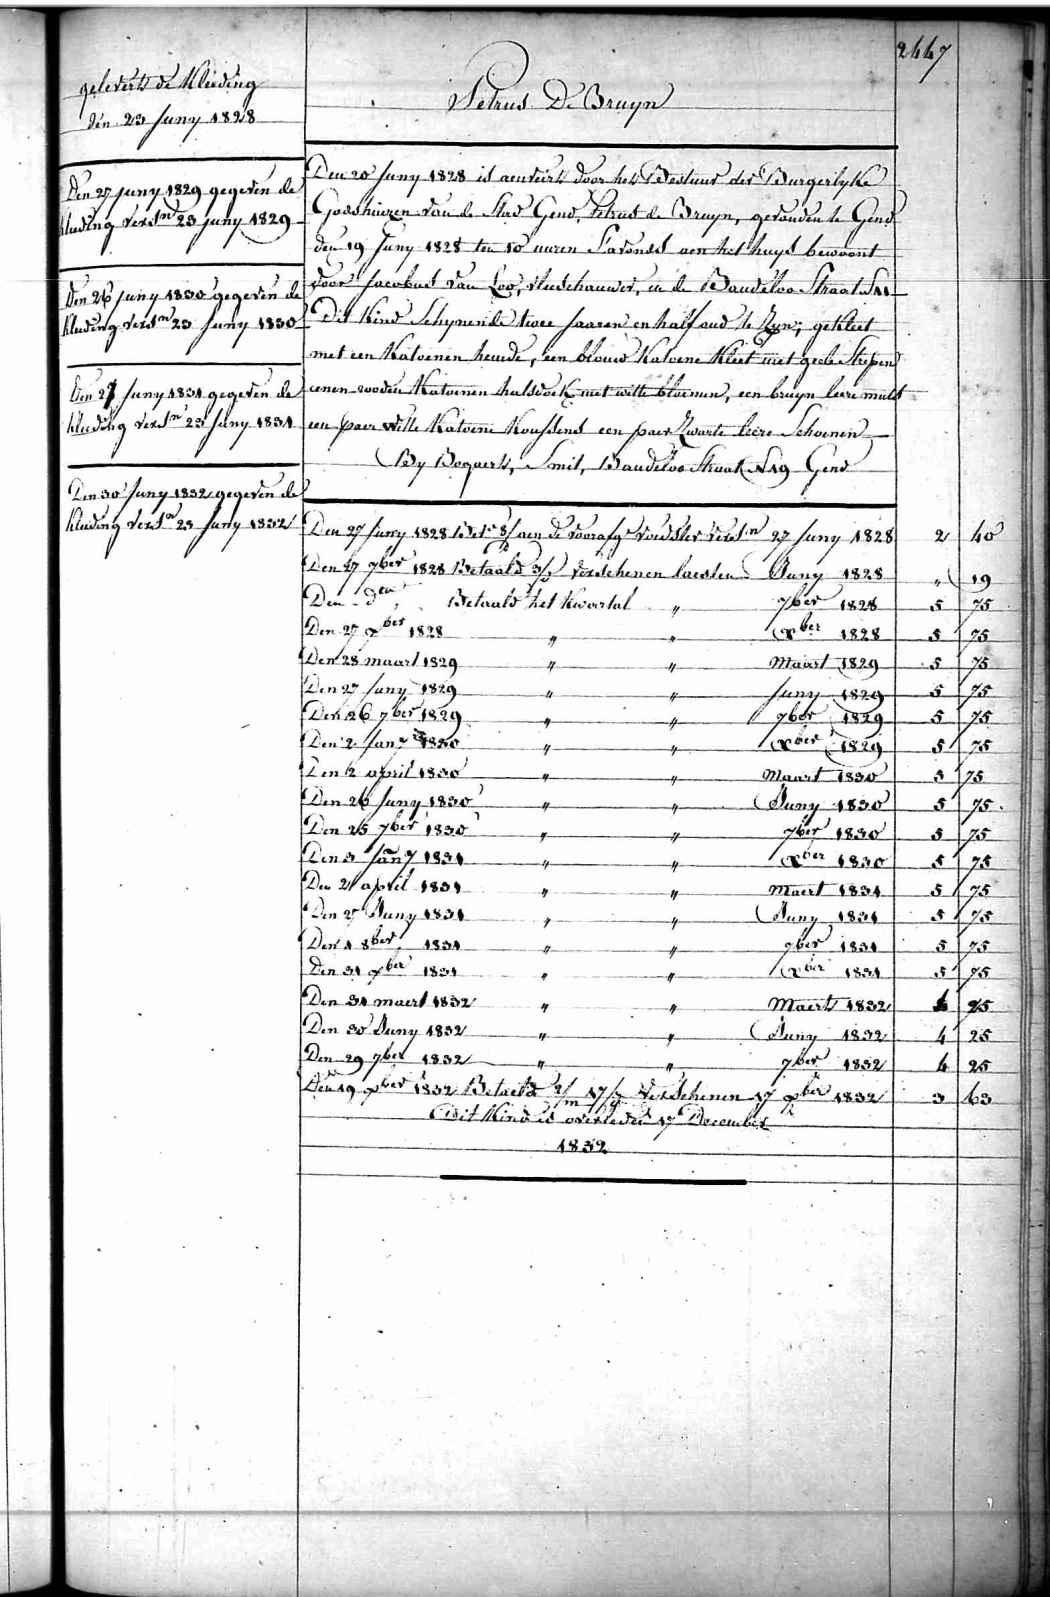 2447
geleverts de Kleeding
den 23 Juny 1828
Den 27 Juny 1829 gegeven de
kleeding versn 23 Juny 1829
Den 26 Juny 1830 gegeven de
kleeding versn 23 Juny 1830
Den 27 Juny 1831 gegeven de
kleeding versn 23 Juny 1831
Den 30 Juny 1832 gegeven de
kleeding versn 23 Juny 1832
Petrus De Bruyn
Den 20 Juny 1828 is aenveirt door het Bestuur der Burgerlyke
Godshuizen van de Stad Gend, Petrus de Bruyn, gevonden te Gend
den 19 Juny 1828 ten 10 uuren S'avonds aen het huys bewoont
door Jacobus van Loo, vleeschauwer, in de Baudeloo Straat N 1
Dit Kind Schynende twee Jaaren en half oud te Zyn; gekleet
met een Katoenen hemde, een blouw Katoene Kleet met geele Strepen
eenen rooden Katoenen halsdoek met witte bloemen, een bruyn leere muts
een paer witte Katoene Koussens een paer Zwarte leere Schoenen
By Bogaert, Smit, Baudeloo Straat N 19 Gend
Den 27 Juny 1828 aen de voorafge voedster versn 27 Juny 1828 2 40
Den 27 7ber 1828 Betaald 3/J verschenen laesten Juny 1828 " 19
Den den " Betaald het Kwartal " 7ber 1828 5 75
Den 27 xber 1828 " " xber 1828 5 75
Den 28 maart 1829 " " Maart 1829 5 75
Den 27 Juny 1829 " " Juny 1829 5 75
Den 26 7ber 1829 " " 7ber 1829 5 75
Den 2 Jany 1830 " " xber 1829 5 75
Den 2 april 1830 " " Maart 1830 5 75
Den 26 Juny 1830 " " Juny 1830 5 75
Den 25 7ber 1830 " " 7ber 1830 5 75
Den 3 Jany 1831 " " xber 1830 5 75
Den 2 april 1831 " " Maert 1831 5 75
Den 27 Juny 1831 " " Juny 1831 5 75
Den 1 8ber 1831 " " 7ber 1831 5 75
Den 31 xber 1831 " " xber 1831 5 75
Den 31 maert 1832 " " Maert 1832 4 25
Den 30 Juny 1832 " " Juny 1832 4 25
Den 29 7ber 1832 " " 7ber 1832 4 25
Den 19 xber 1832 Betaeld 2/m 17/J verschenen 17 xber 1832 3 63
Dit Kind is overleden 17 December
1832